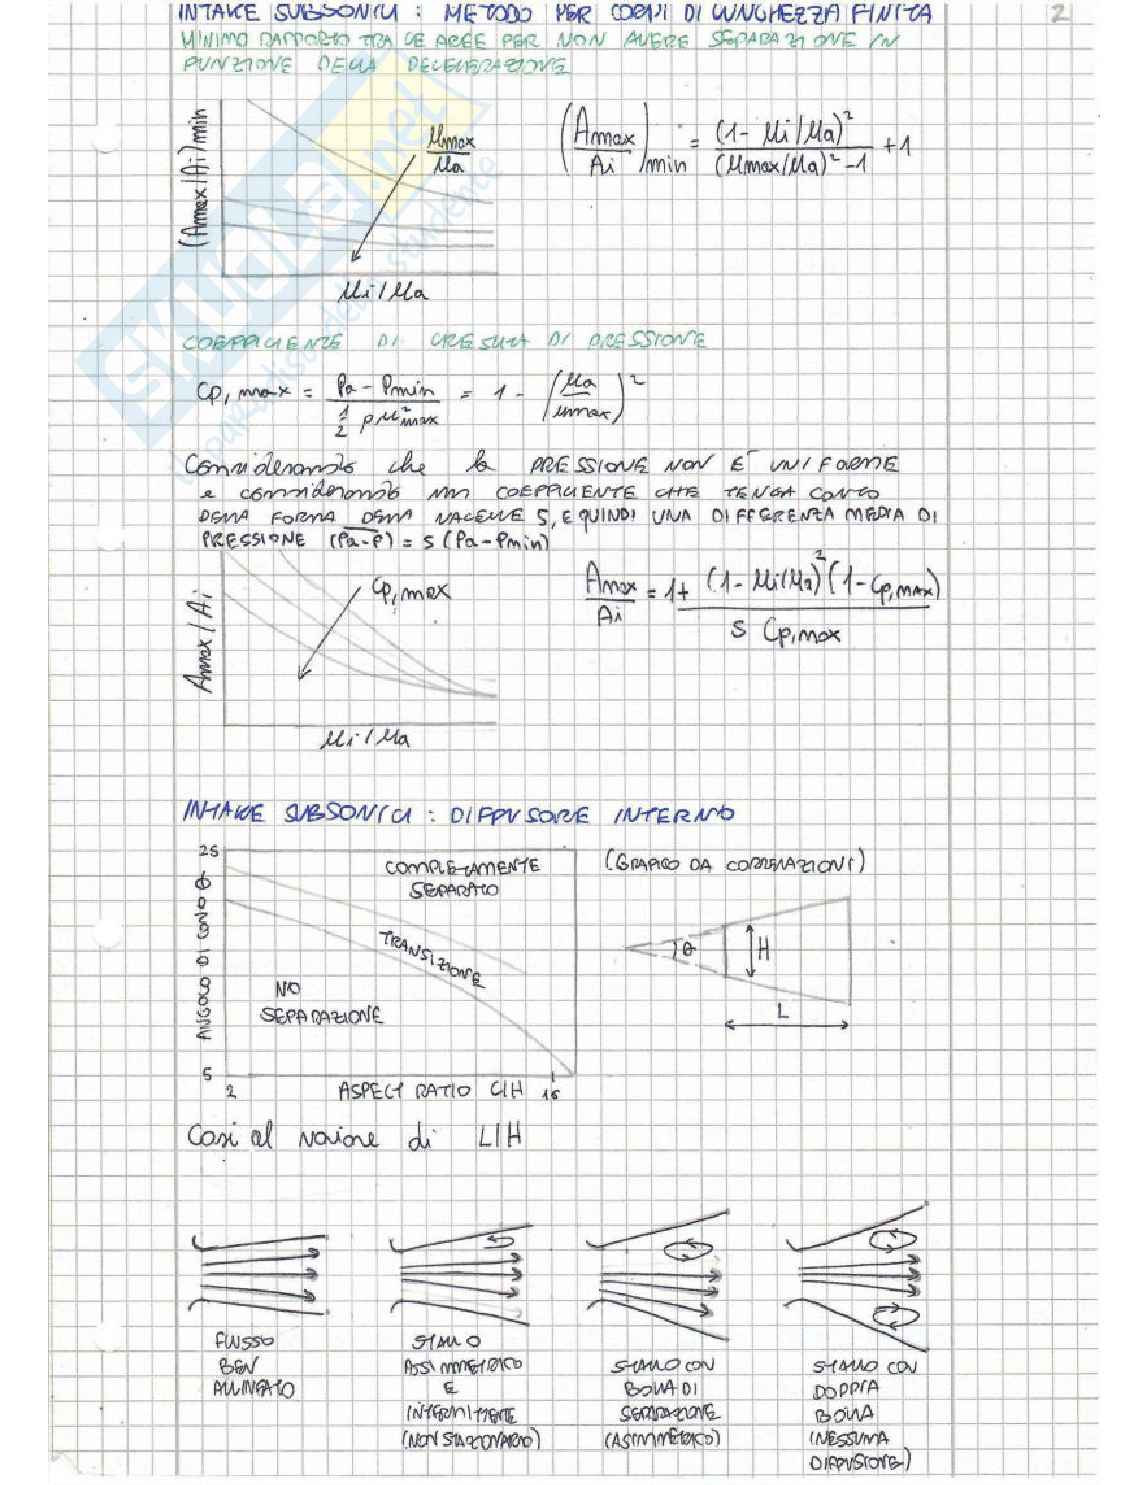 INTAKE SUBSONICI : METODO PER CORPI DI LUNGHEZZA FINITA
2
MINIMO RAPPORTO TRA LE AREE PER NON AVERE SEPARAZIONE IN
FUNZIONE DELLA DECELERAZIONE
(Amax/Ai)min
umax/ua
ui/ua
(Amax/Ai)min = (1 - ui/ua)² / ((umax/ua)² - 1) + 1
COEFFICIENTE DI CRESCITA DI PRESSIONE
Cp,max = (Pa - Pmin) / (1/2 ρ u²max) = 1 - (ua/umax)²
Considerando che la PRESSIONE NON È UNIFORME
e considerando un COEFFICIENTE CHE TENGA CONTO
DELLA FORMA DELLA NACELLE S, E QUINDI UNA DIFFERENZA MEDIA DI
PRESSIONE (Pa-P) = S (Pa - Pmin)
Amax / Ai
Cp,max
ui/ua
Amax/Ai = 1 + (1 - ui/ua)² (1 - Cp,max) / (S Cp,max)
INTAKE SUBSONICI : DIFFUSORE INTERNO
25
ANGOLO DI CONO
COMPLETAMENTE
SEPARATO
TRANSIZIONE
NO
SEPARAZIONE
5
2
ASPECT RATIO L/H
16
(GRAFICO DA CORRELAZIONI)
θ
H
L
Casi al variare di L/H
FLUSSO
BEN
ALLINEATO
STALLO
ASSIMMETRICO
E
INTERMITTENTE
(NON STAZIONARIO)
STALLO CON
BOLLA DI
SEPARAZIONE
(ASIMMETRICO)
STALLO CON
DOPPIA
BOLLA
(NESSUNA
DIFFUSIONE)
SKUOLA.net